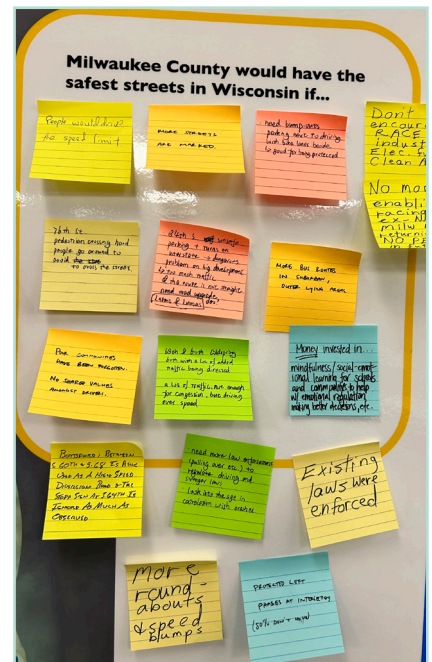 Milwaukee County would have the
safest streets in Wisconsin if...
People would drive
the speed limit
MORE STREETS
ARE MARKED.
need bump-outs
parking next to driving
with bike lanes beside
to good for being protected
Don't
encour
RACE
indust
Elec.
Clean A
No mor
enabli
racing
ex-N
milw
return
"NO PE
76th St
pedestrian crossing hard
people go around to
avoid
to cross the street.
parking & turns on
dangerous
problem on big development
too much traffic
need road upgrade
MORE BUS ROUTES
IN SUBURBAN,
OUTER LYING AREAS
OUR COMMUNITIES
HAVE BEEN FORGOTTEN.
NO SHARED VALUES
AMONGST DRIVERS.
with a lot of added
traffic being diverted
a lot of traffic, not enough
for congestion, but driving
over speed
Money invested in...
mindfulness/social-emot-
ional learning for schools
and communities to help
w/ emotional regulation,
making better decisions, etc.
BETWEEN
S 60TH & S 68 IS BEING
USED AS A HIGH SPEED
ROAD & THE
STOP SIGN AT S 64TH IS
IGNORED AS MUCH AS
OBSERVED
need more law enforcement
(pulling over etc.) to
regulate driving and
stronger laws
look into the age in
correlation with
Existing
laws were
enforced
More
round-
abouts
& speed
bumps
PROTECTED LEFT
PHASES AT INTERSECTION
(50% DON'T